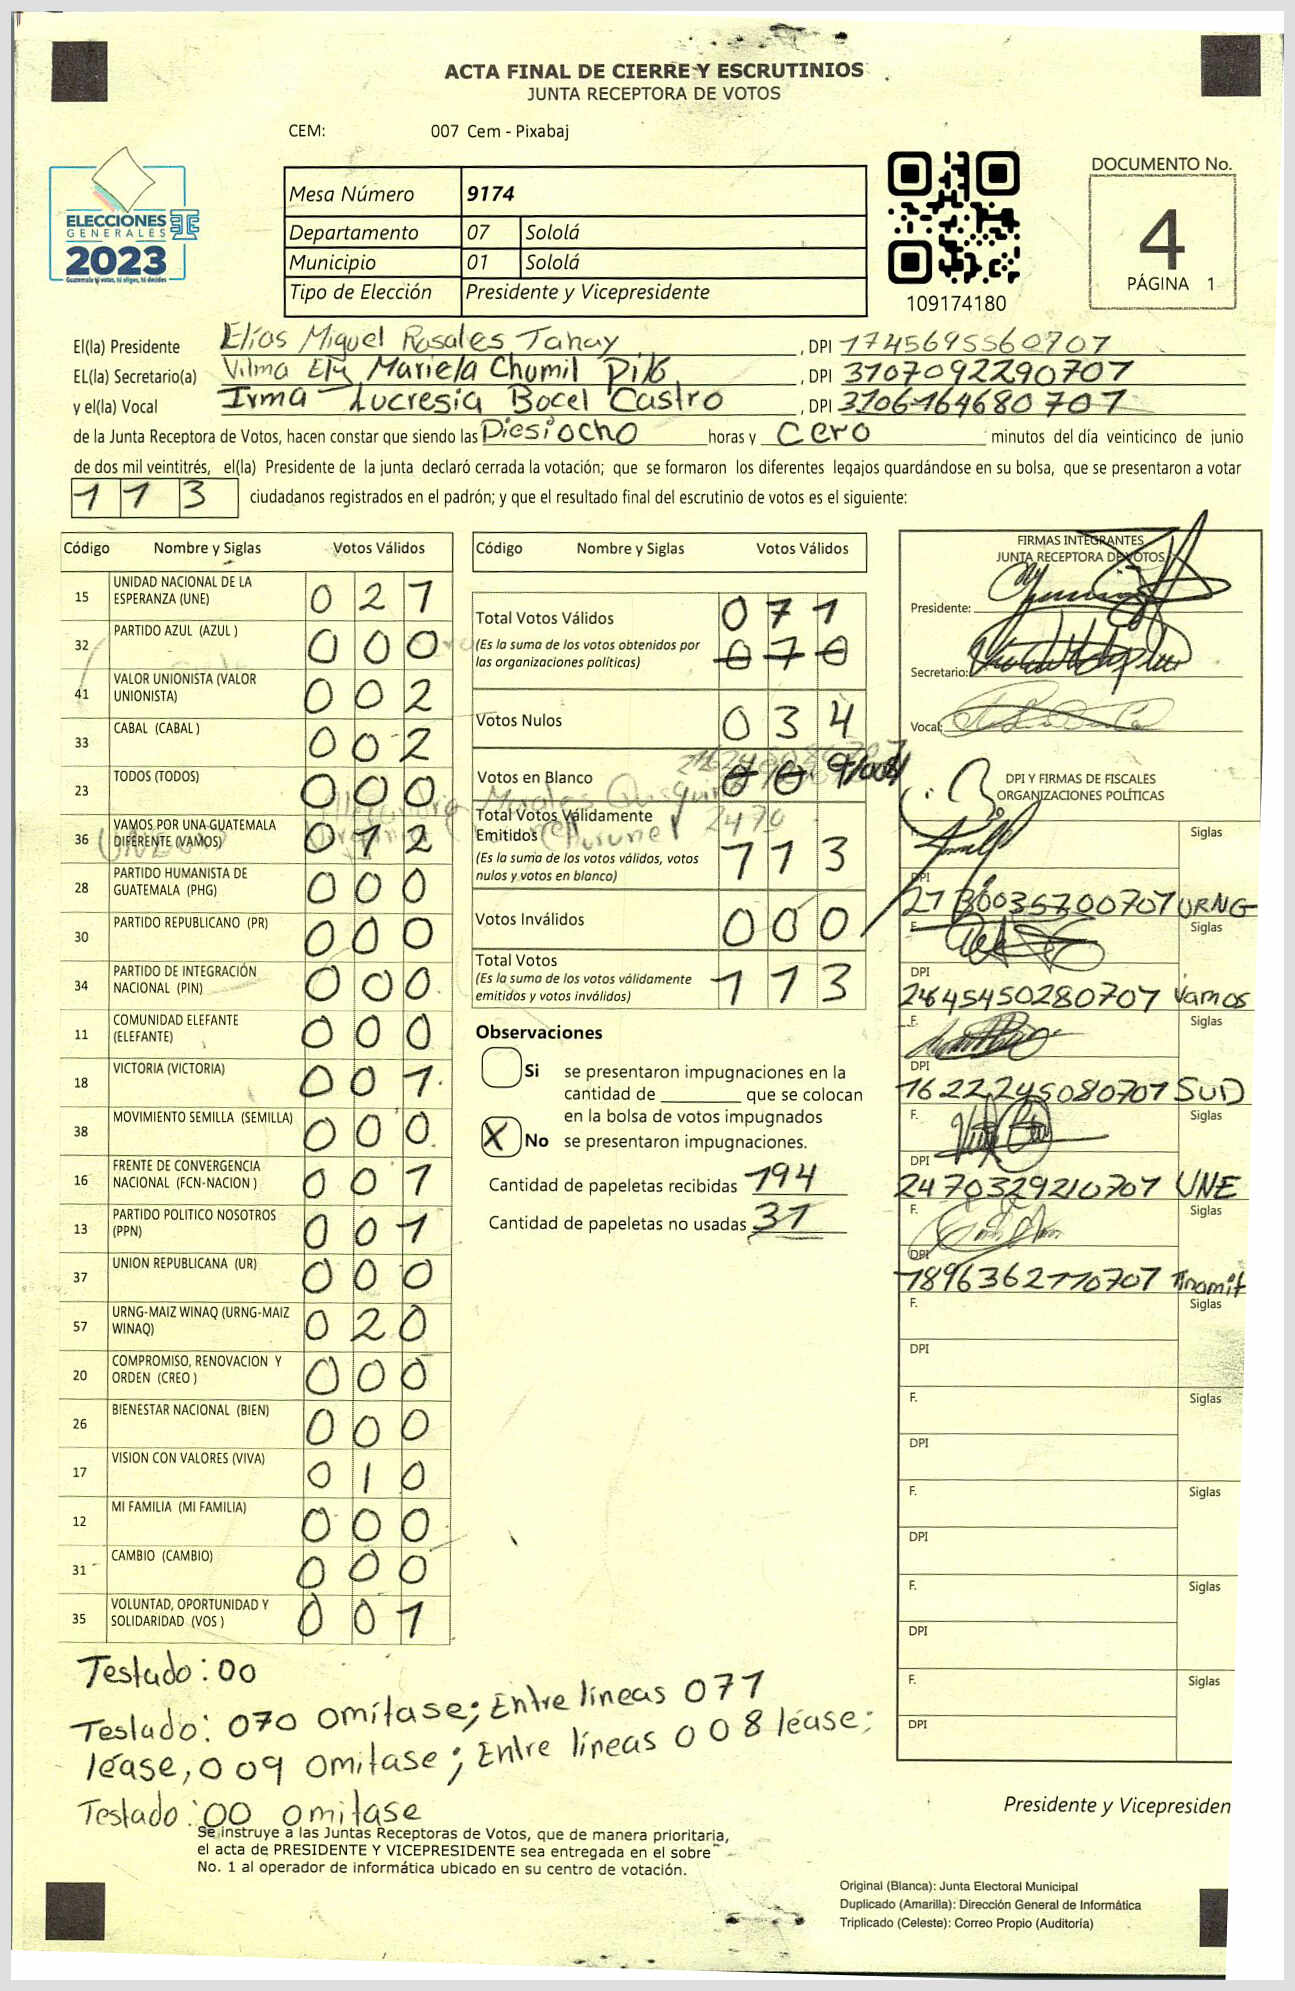 ACTA FINAL DE CIERRE Y ESCRUTINIOS
JUNTA RECEPTORA DE VOTOS
CEM: 007 Cem - Pixabaj
ELECCIONES
GENERALES
2023
Guatemala tú votas, tú eliges, tú decides
Mesa Número 9174
Departamento 07 Sololá
Municipio 01 Sololá
Tipo de Elección Presidente y Vicepresidente
109174180
DOCUMENTO No.
4
PÁGINA 1
El(la) Presidente Elías Miguel Rosales Tahay, DPI 1745695560707
EL(la) Secretario(a) Vilma Ely Mariela Chumil Pixó, DPI 3107092290707
y el(la) Vocal Irma Lucresia Bocel Castro, DPI 3106164680707
de la Junta Receptora de Votos, hacen constar que siendo las Diesiocho horas y Cero minutos del día veinticinco de junio
de dos mil veintitrés, el(la) Presidente de la junta declaró cerrada la votación; que se formaron los diferentes legajos quardándose en su bolsa, que se presentaron a votar
113 ciudadanos registrados en el padrón; y que el resultado final del escrutinio de votos es el siguiente:
Código Nombre y Siglas Votos Válidos
15 UNIDAD NACIONAL DE LA ESPERANZA (UNE) 021
32 PARTIDO AZUL (AZUL ) 000
41 VALOR UNIONISTA (VALOR UNIONISTA) 002
33 CABAL (CABAL ) 002
23 TODOS (TODOS) 000
36 VAMOS POR UNA GUATEMALA DIFERENTE (VAMOS) 012
28 PARTIDO HUMANISTA DE GUATEMALA (PHG) 000
30 PARTIDO REPUBLICANO (PR) 000
34 PARTIDO DE INTEGRACIÓN NACIONAL (PIN) 000
11 COMUNIDAD ELEFANTE (ELEFANTE) 000
18 VICTORIA (VICTORIA) 001
38 MOVIMIENTO SEMILLA (SEMILLA) 000
16 FRENTE DE CONVERGENCIA NACIONAL (FCN-NACION ) 001
13 PARTIDO POLITICO NOSOTROS (PPN) 001
37 UNION REPUBLICANA (UR) 000
57 URNG-MAIZ WINAQ (URNG-MAIZ WINAQ) 020
20 COMPROMISO, RENOVACION Y ORDEN (CREO ) 000
26 BIENESTAR NACIONAL (BIEN) 000
17 VISION CON VALORES (VIVA) 010
12 MI FAMILIA (MI FAMILIA) 000
31 CAMBIO (CAMBIO) 000
35 VOLUNTAD, OPORTUNIDAD Y SOLIDARIDAD (VOS ) 001
Código Nombre y Siglas Votos Válidos
Total Votos Válidos 071
(Es la suma de los votos obtenidos por las organizaciones políticas) 070
Votos Nulos 034
Votos en Blanco 009/008
Total Votos Válidamente Emitidos
(Es la suma de los votos válidos, votos nulos y votos en blanco) 113
Votos Inválidos 000
Total Votos
(Es la suma de los votos válidamente emitidos y votos inválidos) 113
Observaciones
Si se presentaron impugnaciones en la
cantidad de ________ que se colocan
en la bolsa de votos impugnados
X No se presentaron impugnaciones.
Cantidad de papeletas recibidas 194
Cantidad de papeletas no usadas 31
FIRMAS INTEGRANTES
JUNTA RECEPTORA DE VOTOS
Presidente:
Secretario:
Vocal:
DPI Y FIRMAS DE FISCALES
ORGANIZACIONES POLÍTICAS
F. Siglas
DPI 2130035700707 URNG
F. Siglas
DPI 2645450280707 Vamos
F. Siglas
DPI 1622245080707 SUD
F. Siglas
DPI 2470329210707 UNE
F. Siglas
DPI 1896362110707 Tinamit
F. Siglas
DPI
F. Siglas
DPI
F. Siglas
DPI
F. Siglas
DPI
F. Siglas
DPI
Testado: 00
Testado: 070 omítase; Entre líneas 071
léase, 009 omitase; Entre líneas 008 léase;
Testado: 00 omitase
Se instruye a las Juntas Receptoras de Votos, que de manera prioritaria,
el acta de PRESIDENTE Y VICEPRESIDENTE sea entregada en el sobre
No. 1 al operador de informática ubicado en su centro de votación.
Presidente y Vicepresiden
Original (Blanca): Junta Electoral Municipal
Duplicado (Amarilla): Dirección General de Informática
Triplicado (Celeste): Correo Propio (Auditoría)